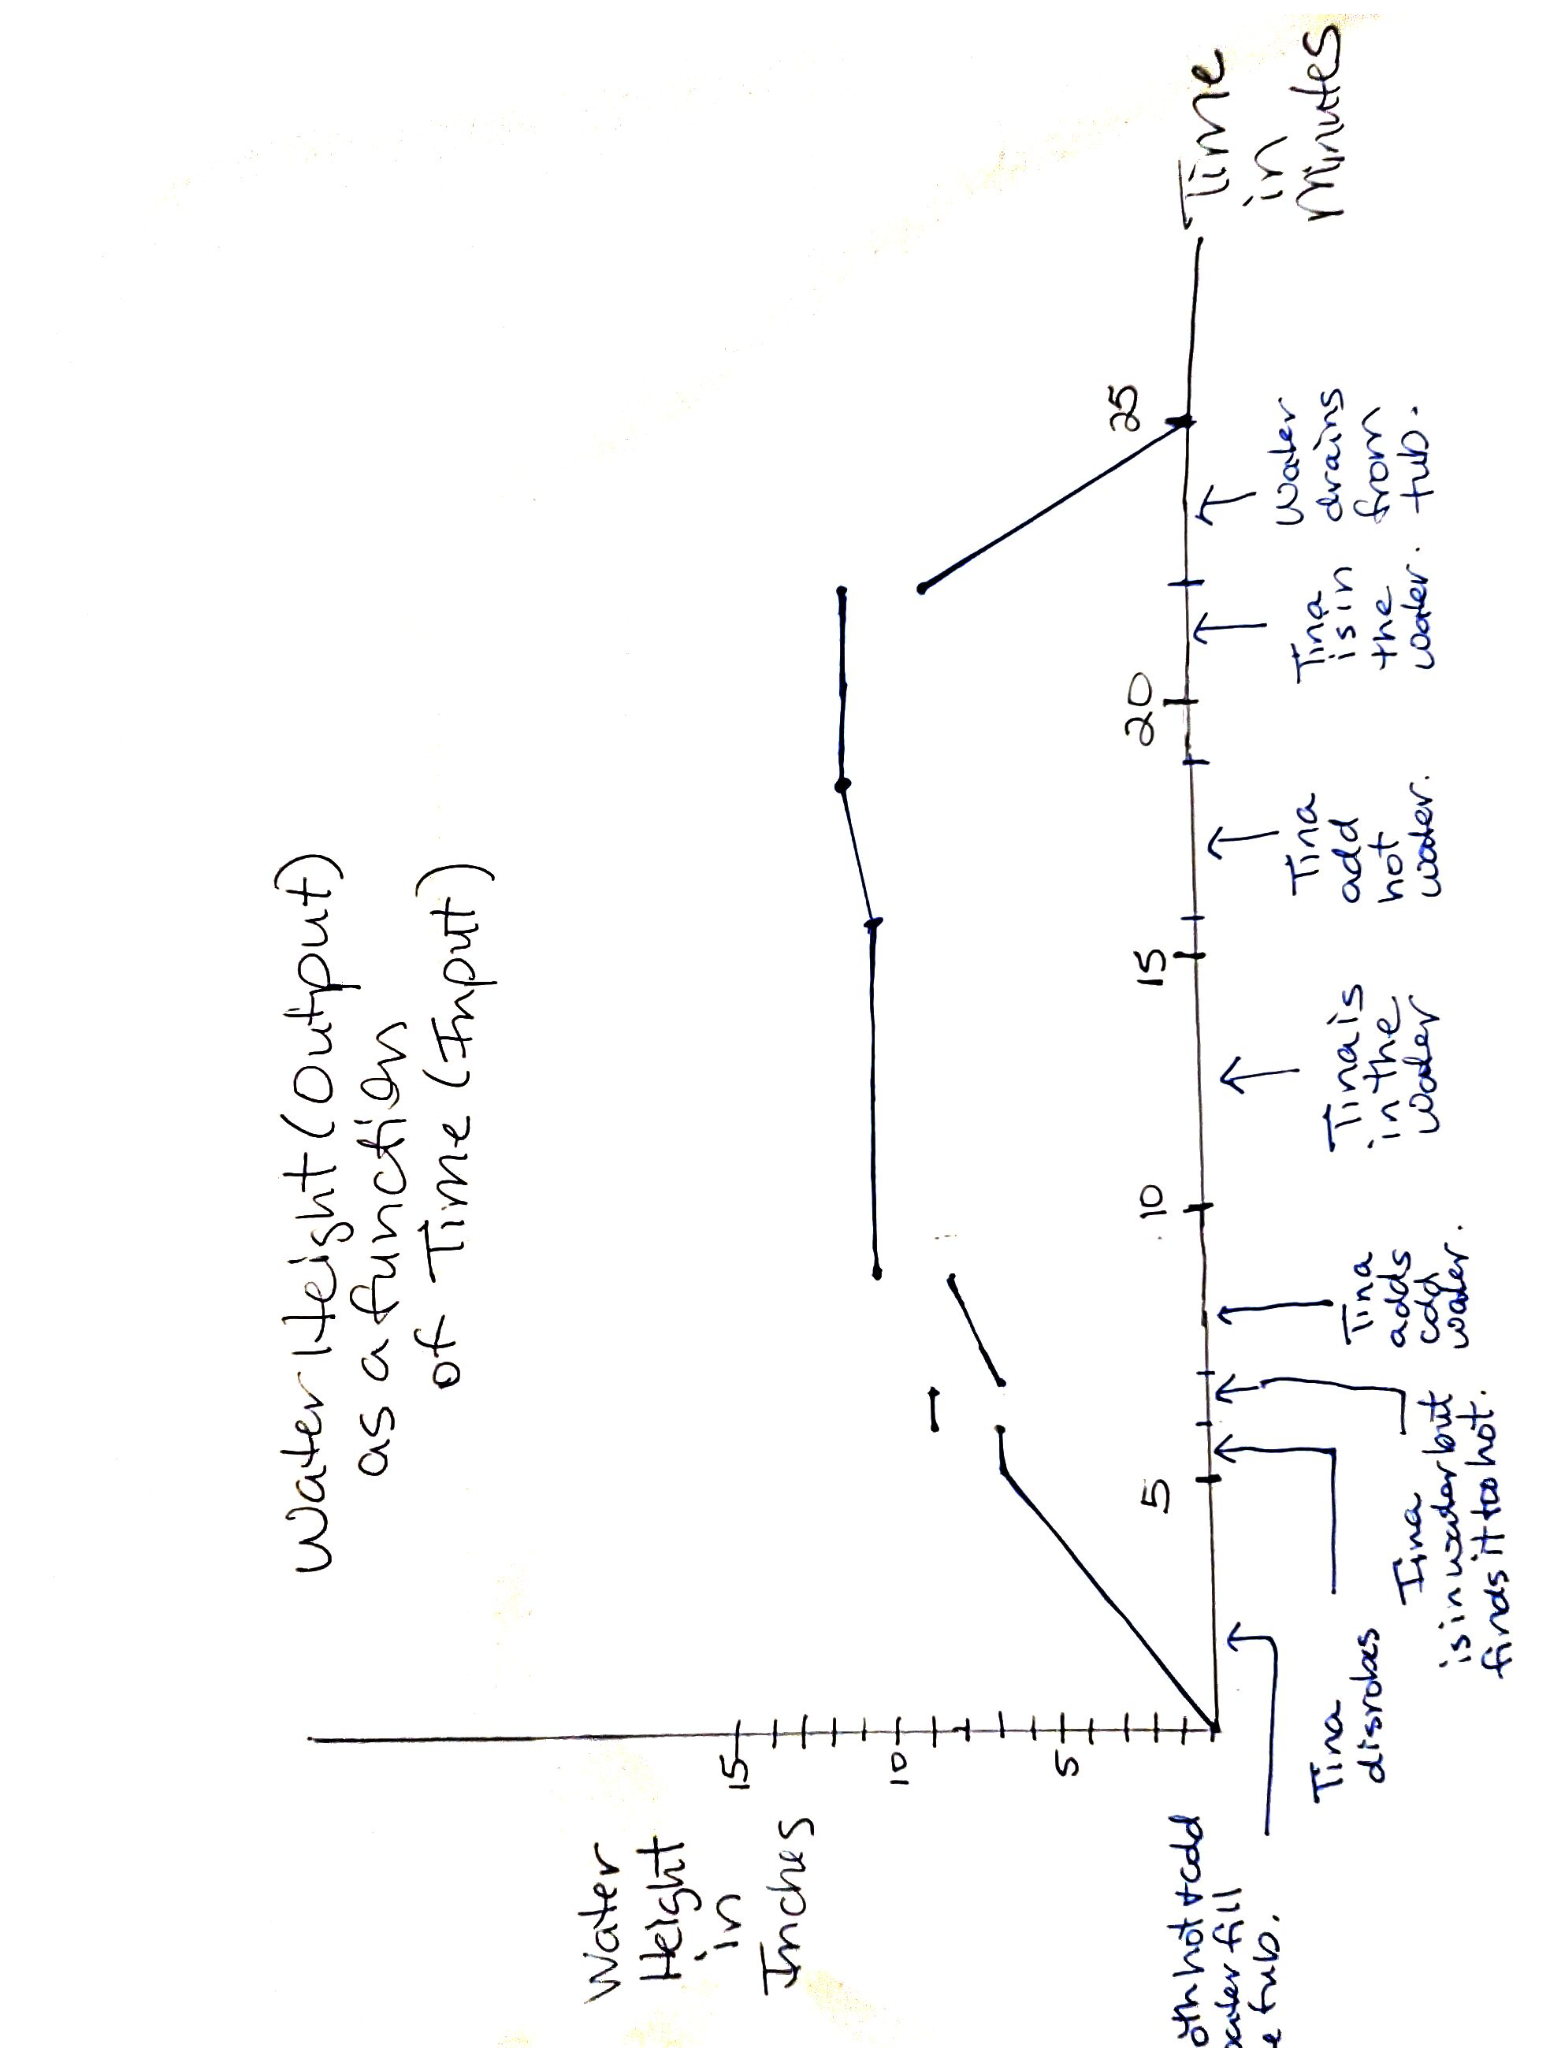 Water Height (Output)
as a function
of Time (Input)
Water
Height
in
Inches
15
10
5
5
10
15
20
25
Time
in
Minutes
oth hot + cold
water fill
e tub.
Tina
disrobes
Tina
is in water but
finds it too hot.
Tina
adds
cold
water.
Tina is
in the
water
Tina
add
hot
water.
Tina
is in
the
water.
Water
drains
from
tub.